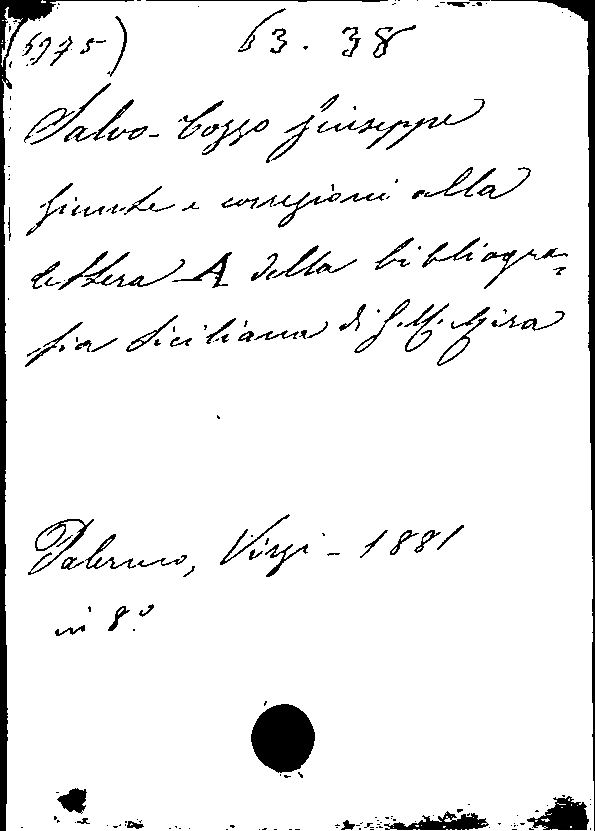 (5975) 63. 38
Salvo-Cozzo Giuseppe
Giunte e corregioni alla
lettera A della bibliogra-
fia Siciliana di G. M. Mira
Palermo, Virzi - 1881
in 8.º